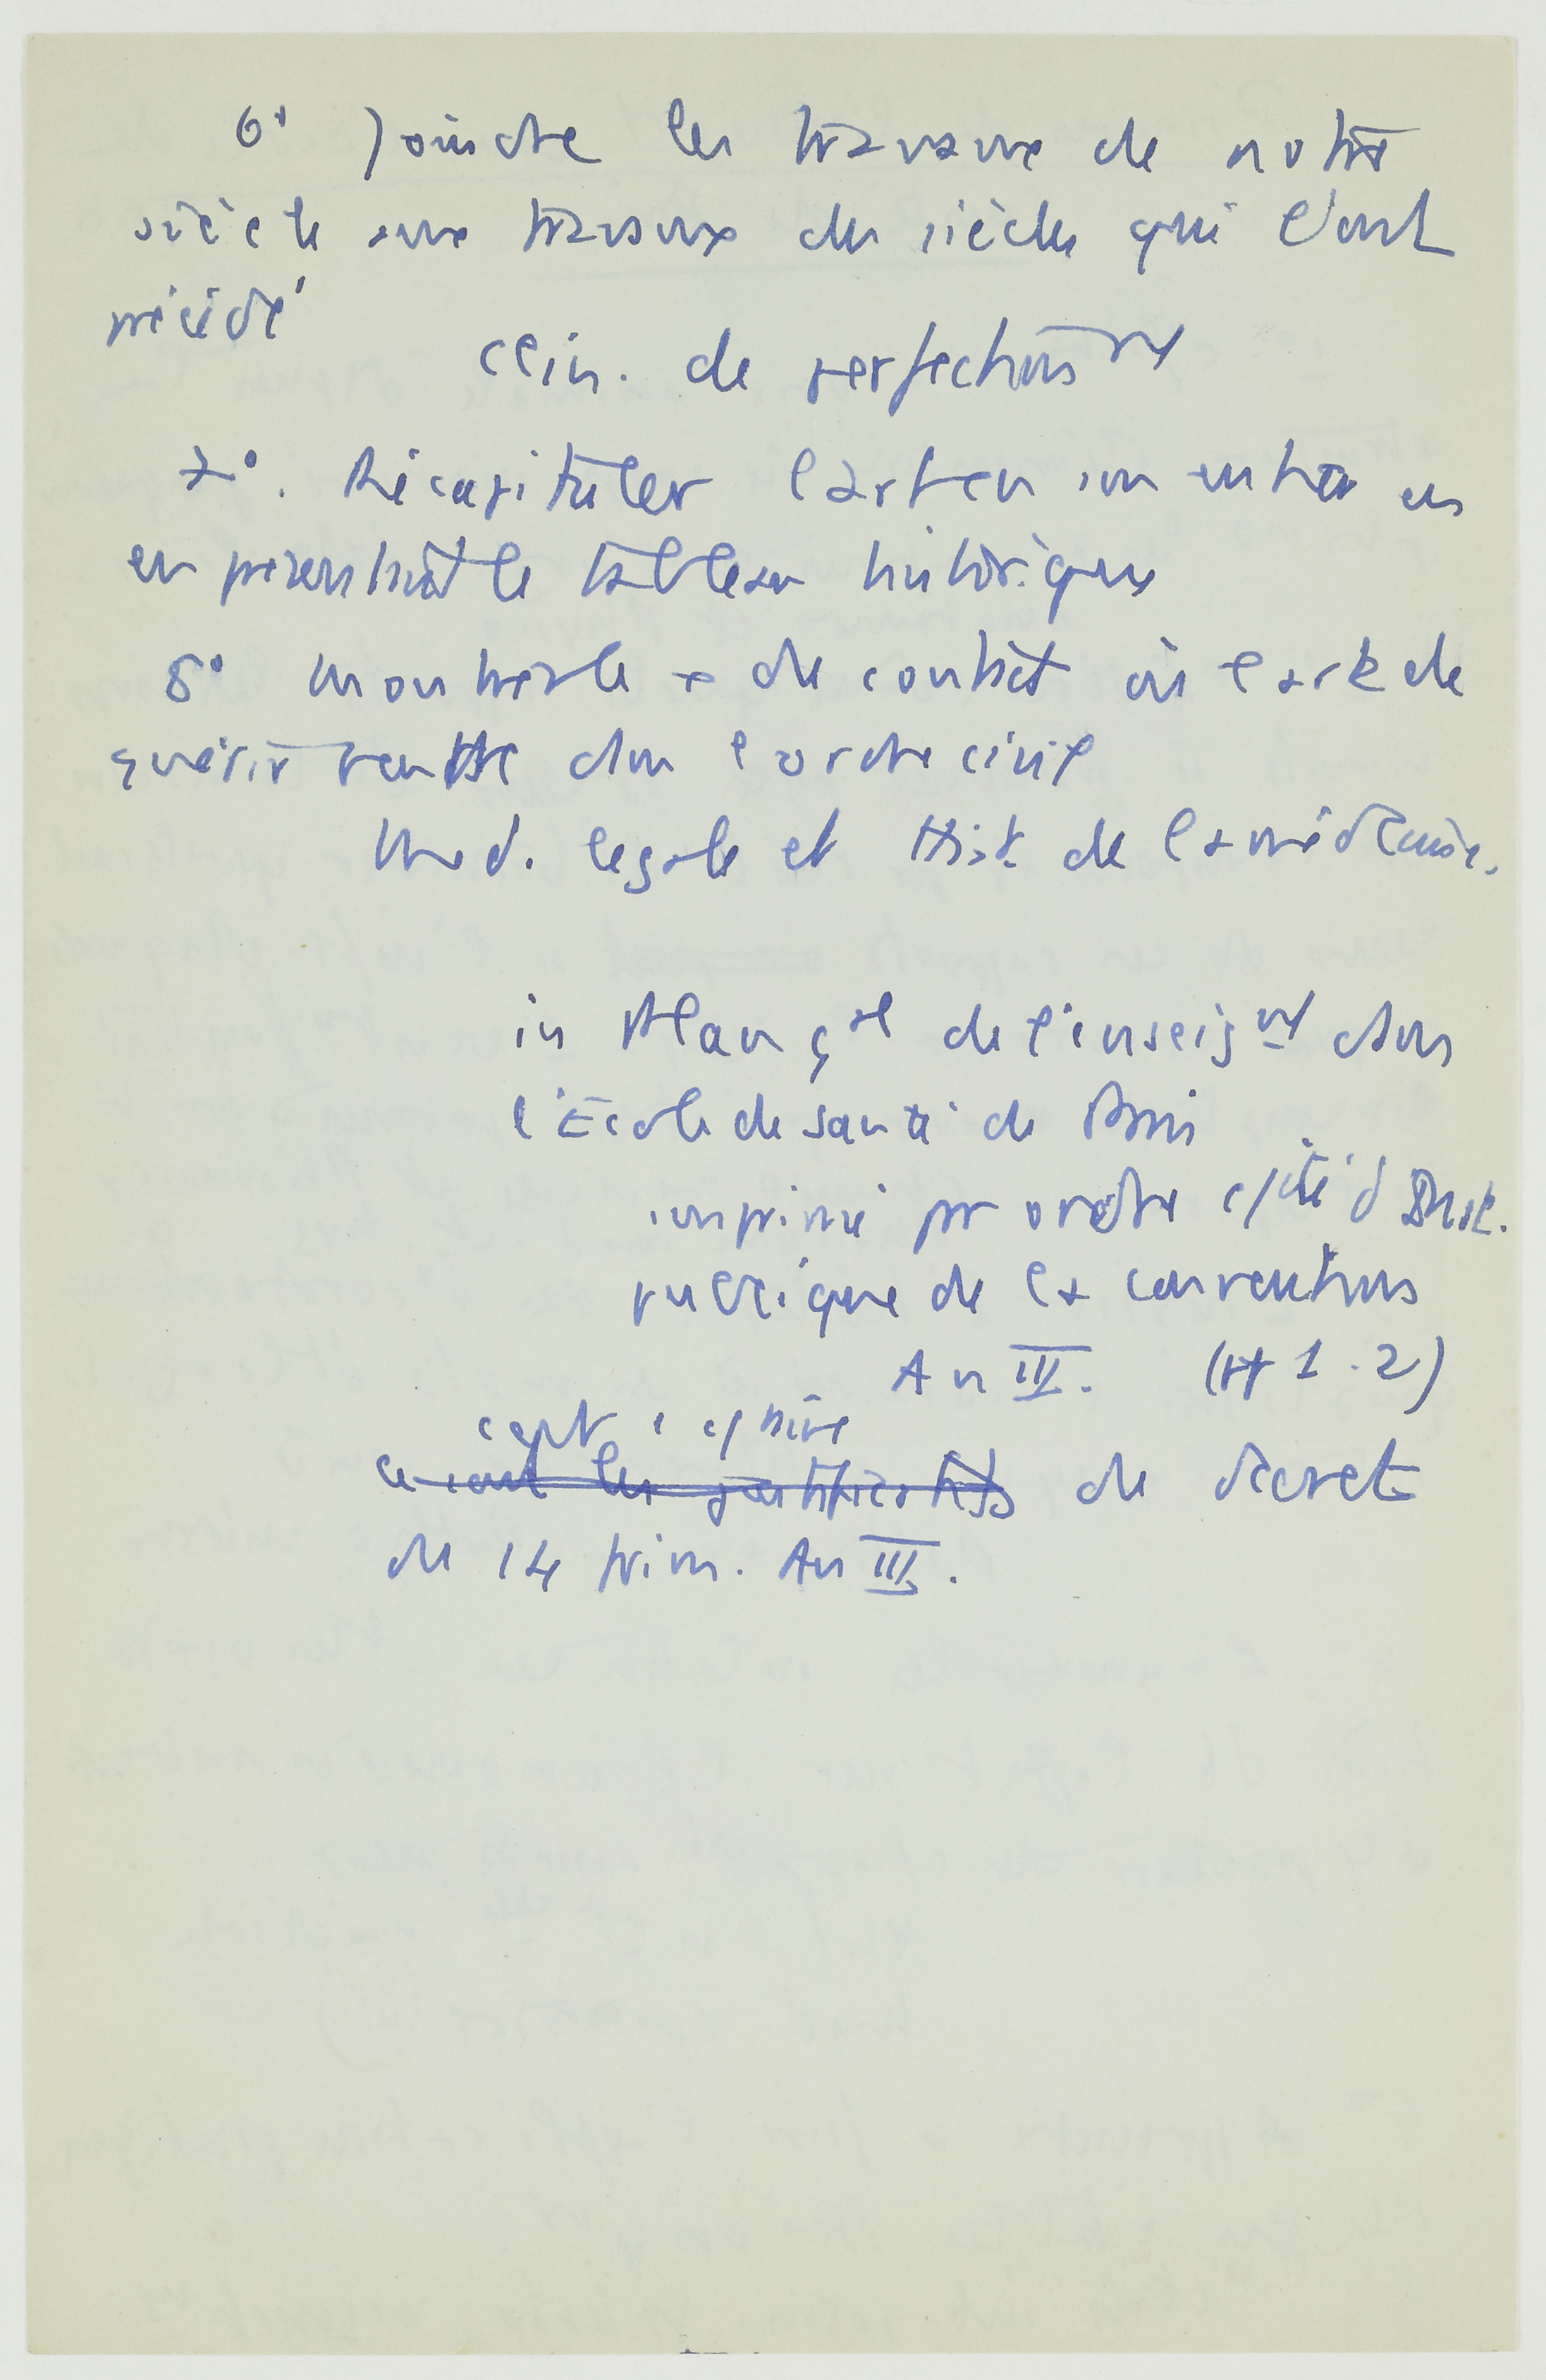 6° Joindre les travaux de notre
siècle aux travaux des siècles qui l'ont
précédé
Clin. de perfectionnt
7°. Récapituler l'art en son entier en
en présentant le tableau historique
8° Montrer le de contrat où l'art de
guérir rentre dans l'ordre civil
Med. légale et Hist. de la médecine.
in Plan gal de l'enseignt dans
l'École de santé de Paris
imprimé par ordre c/ité d'Inst.
publique de la convention
An III. (p 1-2)
c'est le c/aire
ce sont les du décret
du 14 frim. An III.